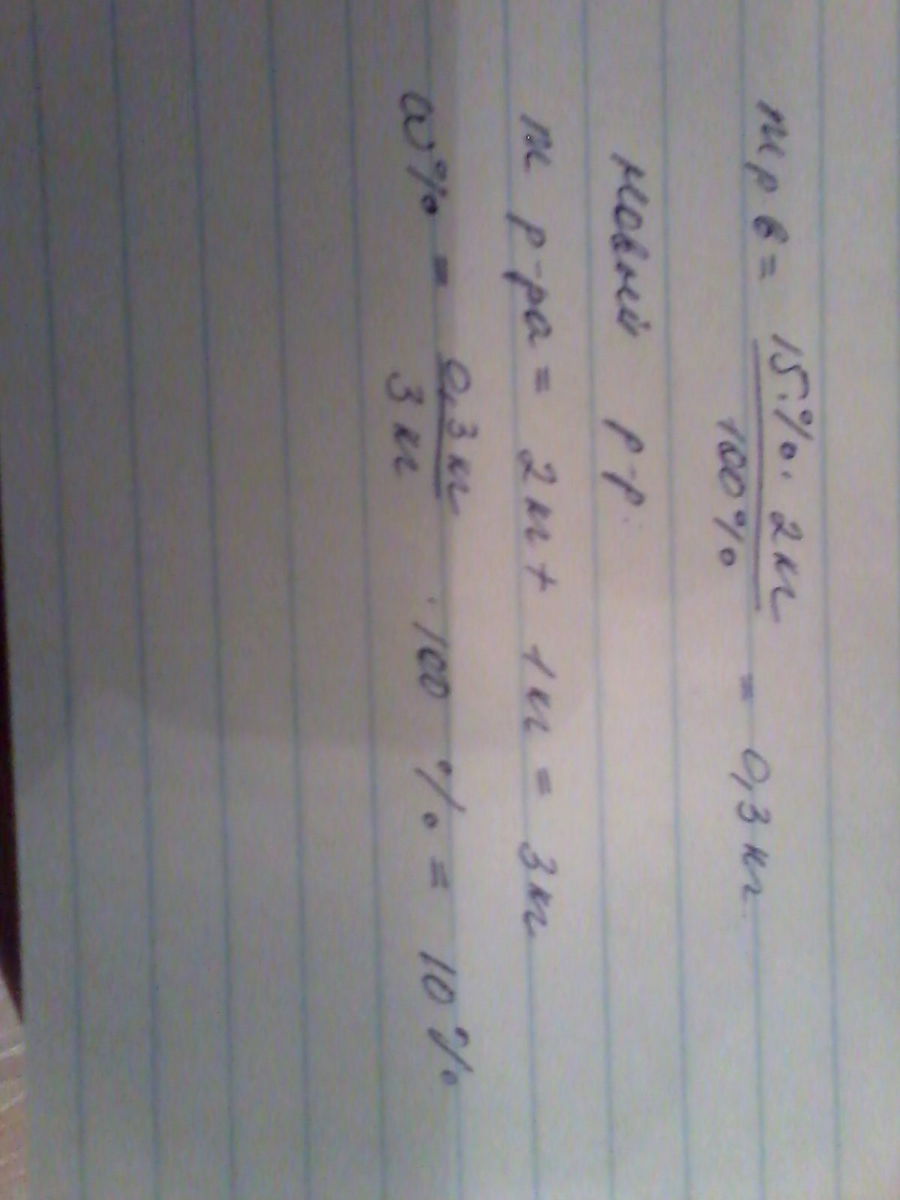 m р в = 15% · 2 кг / 100% = 0,3 кг
новый р-р:
m р-ра = 2 кг + 1 кг = 3 кг
ω% = 0,3 кг / 3 кг · 100 % = 10 %